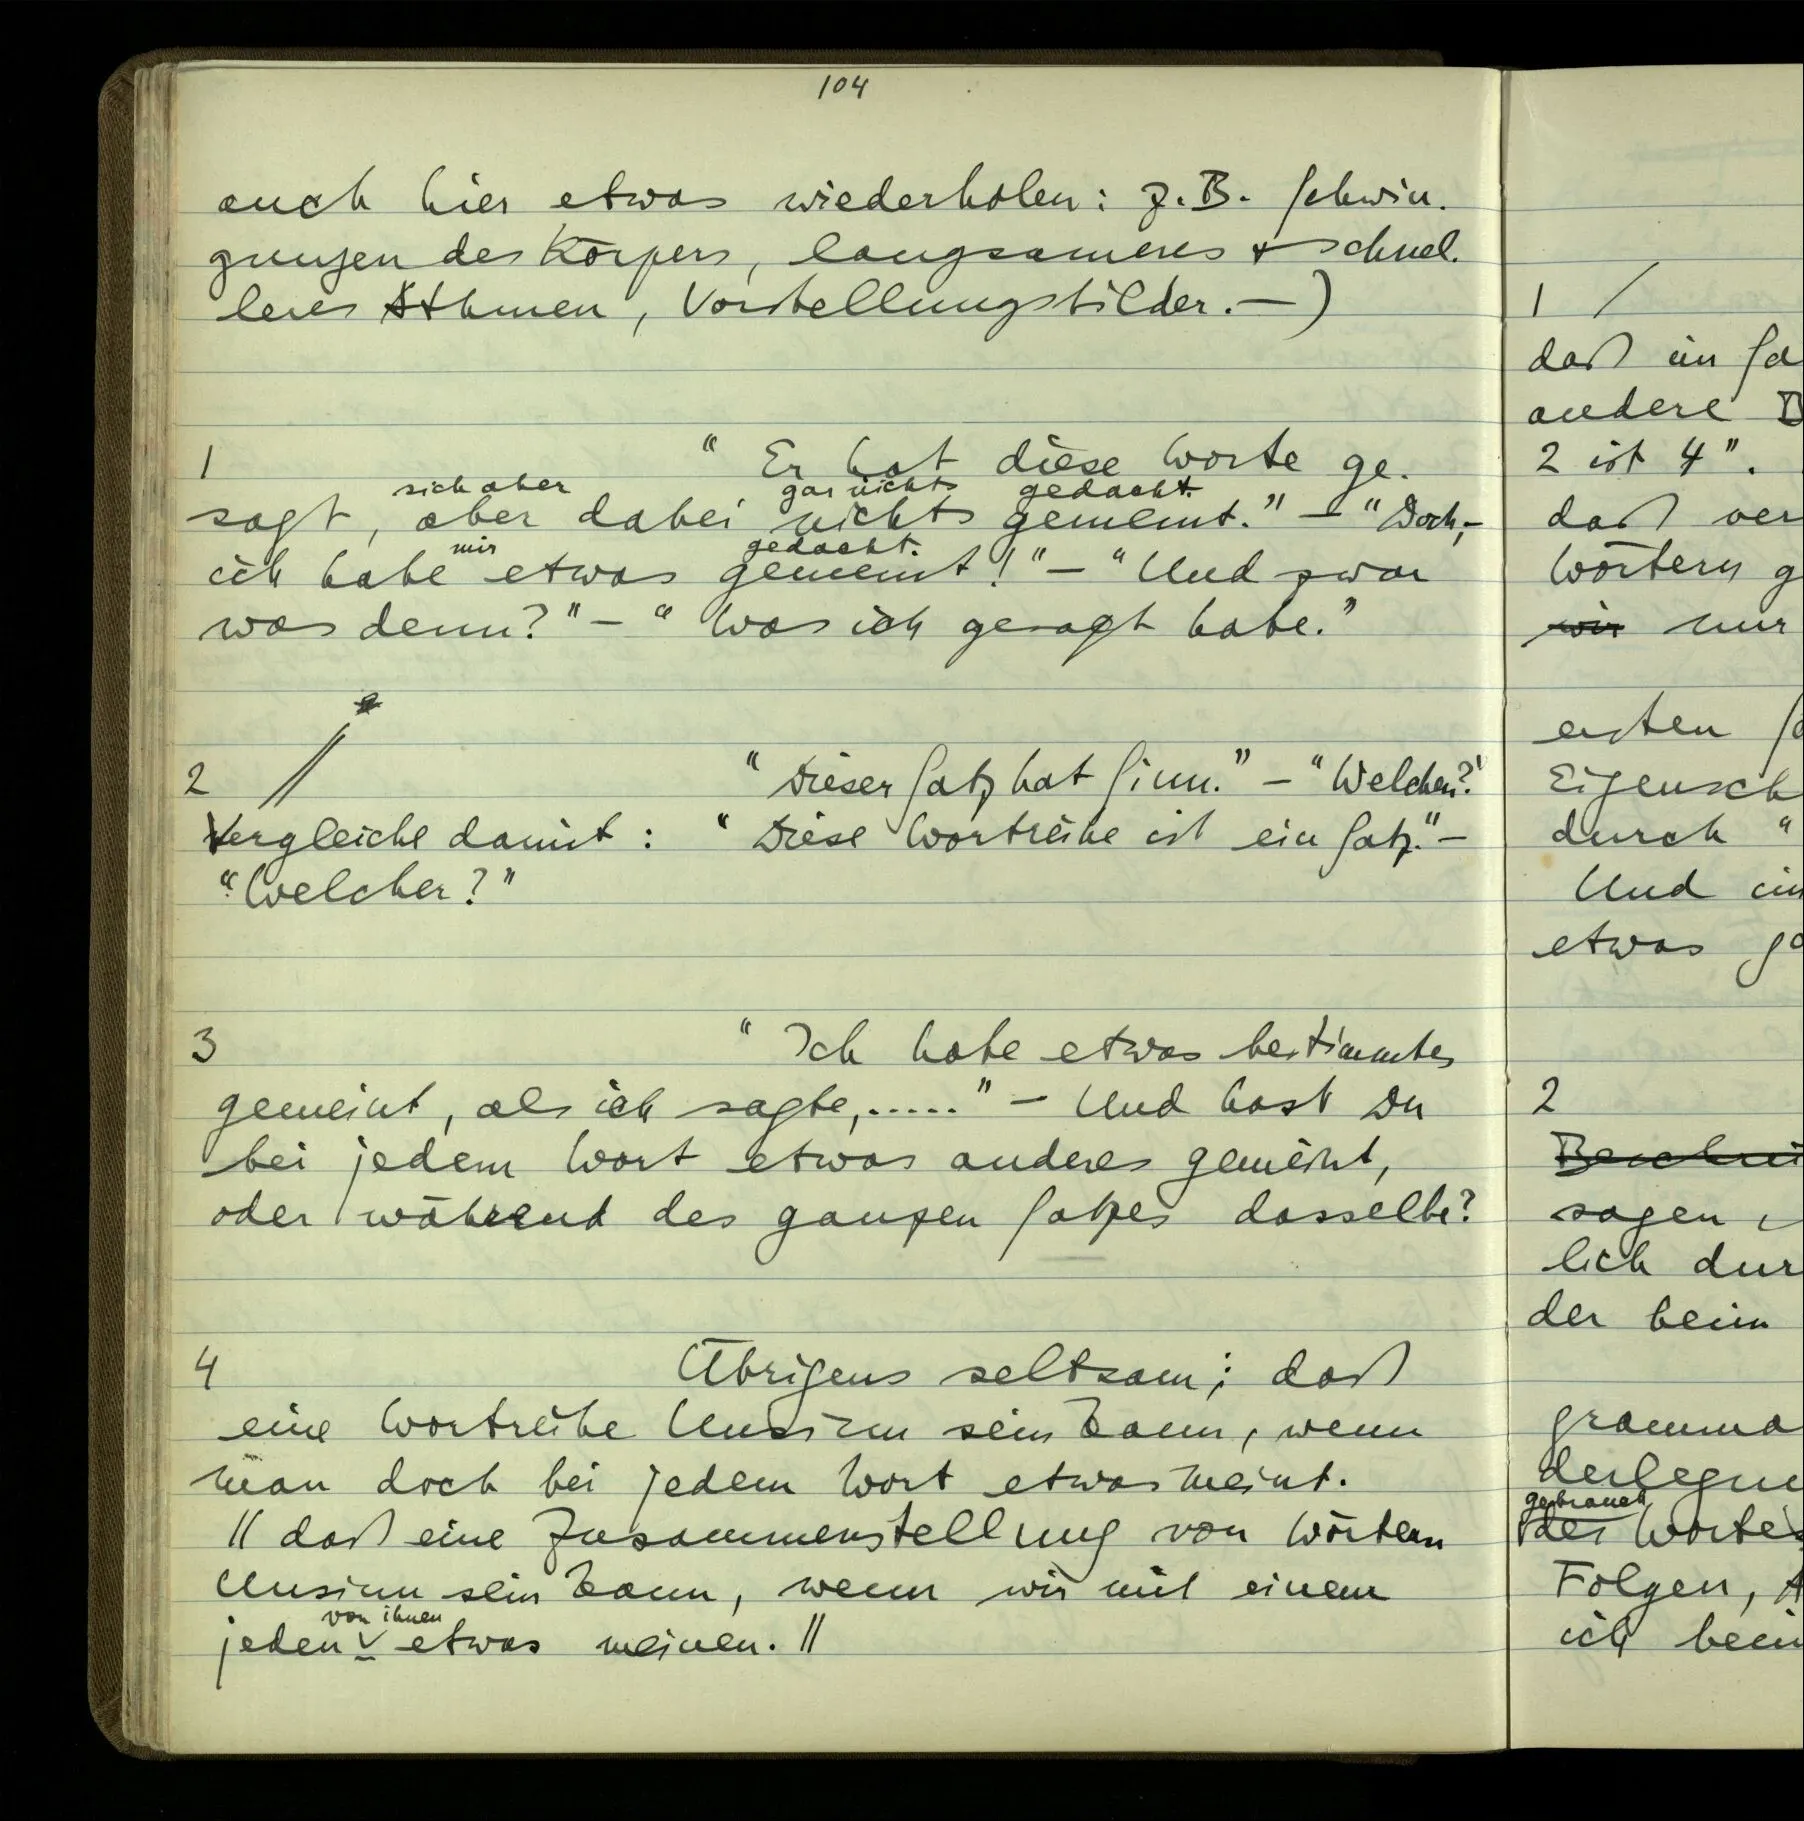 104
auch hier etwas wiederholen: z.B. Schwin-
gungen des Körpers, langsameres + schnel-
leres Athmen, Vorstellungsbilder. —)
1 “Er hat diese Worte ge-
sich aber gar nichts gedacht.
sagt, aber dabei nichts gemeint.” — “Doch, –
mir gedacht.
ich habe etwas gemeint!” — “Und zwar
was denn?” — “Was ich gesagt habe.”
2 // “Dieser Satz hat Sinn.” — “Welchen?”
Vergleiche damit: “Diese Wortreihe ist ein Satz.” —
“Welcher?”
3 “Ich habe etwas bestimmtes
gemeint, als ich sagte,.....” — Und hast Du
bei jedem Wort etwas anderes gemeint,
oder während des ganzen Satzes dasselbe?
4 Übrigens seltsam; daß
eine Wortreihe Unsinn sein kann, wenn
man doch bei jedem Wort etwas meint.
// daß eine Zusammenstellung von Wörtern
Unsinn sein kann, wenn wir mit einem
von ihnen
jeden etwas meinen. //
1 /
daß ein Sa
andere B
2 ist 4”.
daß ver
Wörtern g
wir nur
ersten
Eigensch
durch “
Und ein
etwas
2
sagen
lich dur
der beim
gramma
gebrauch
des Wortes
Folgen, A
ich beim